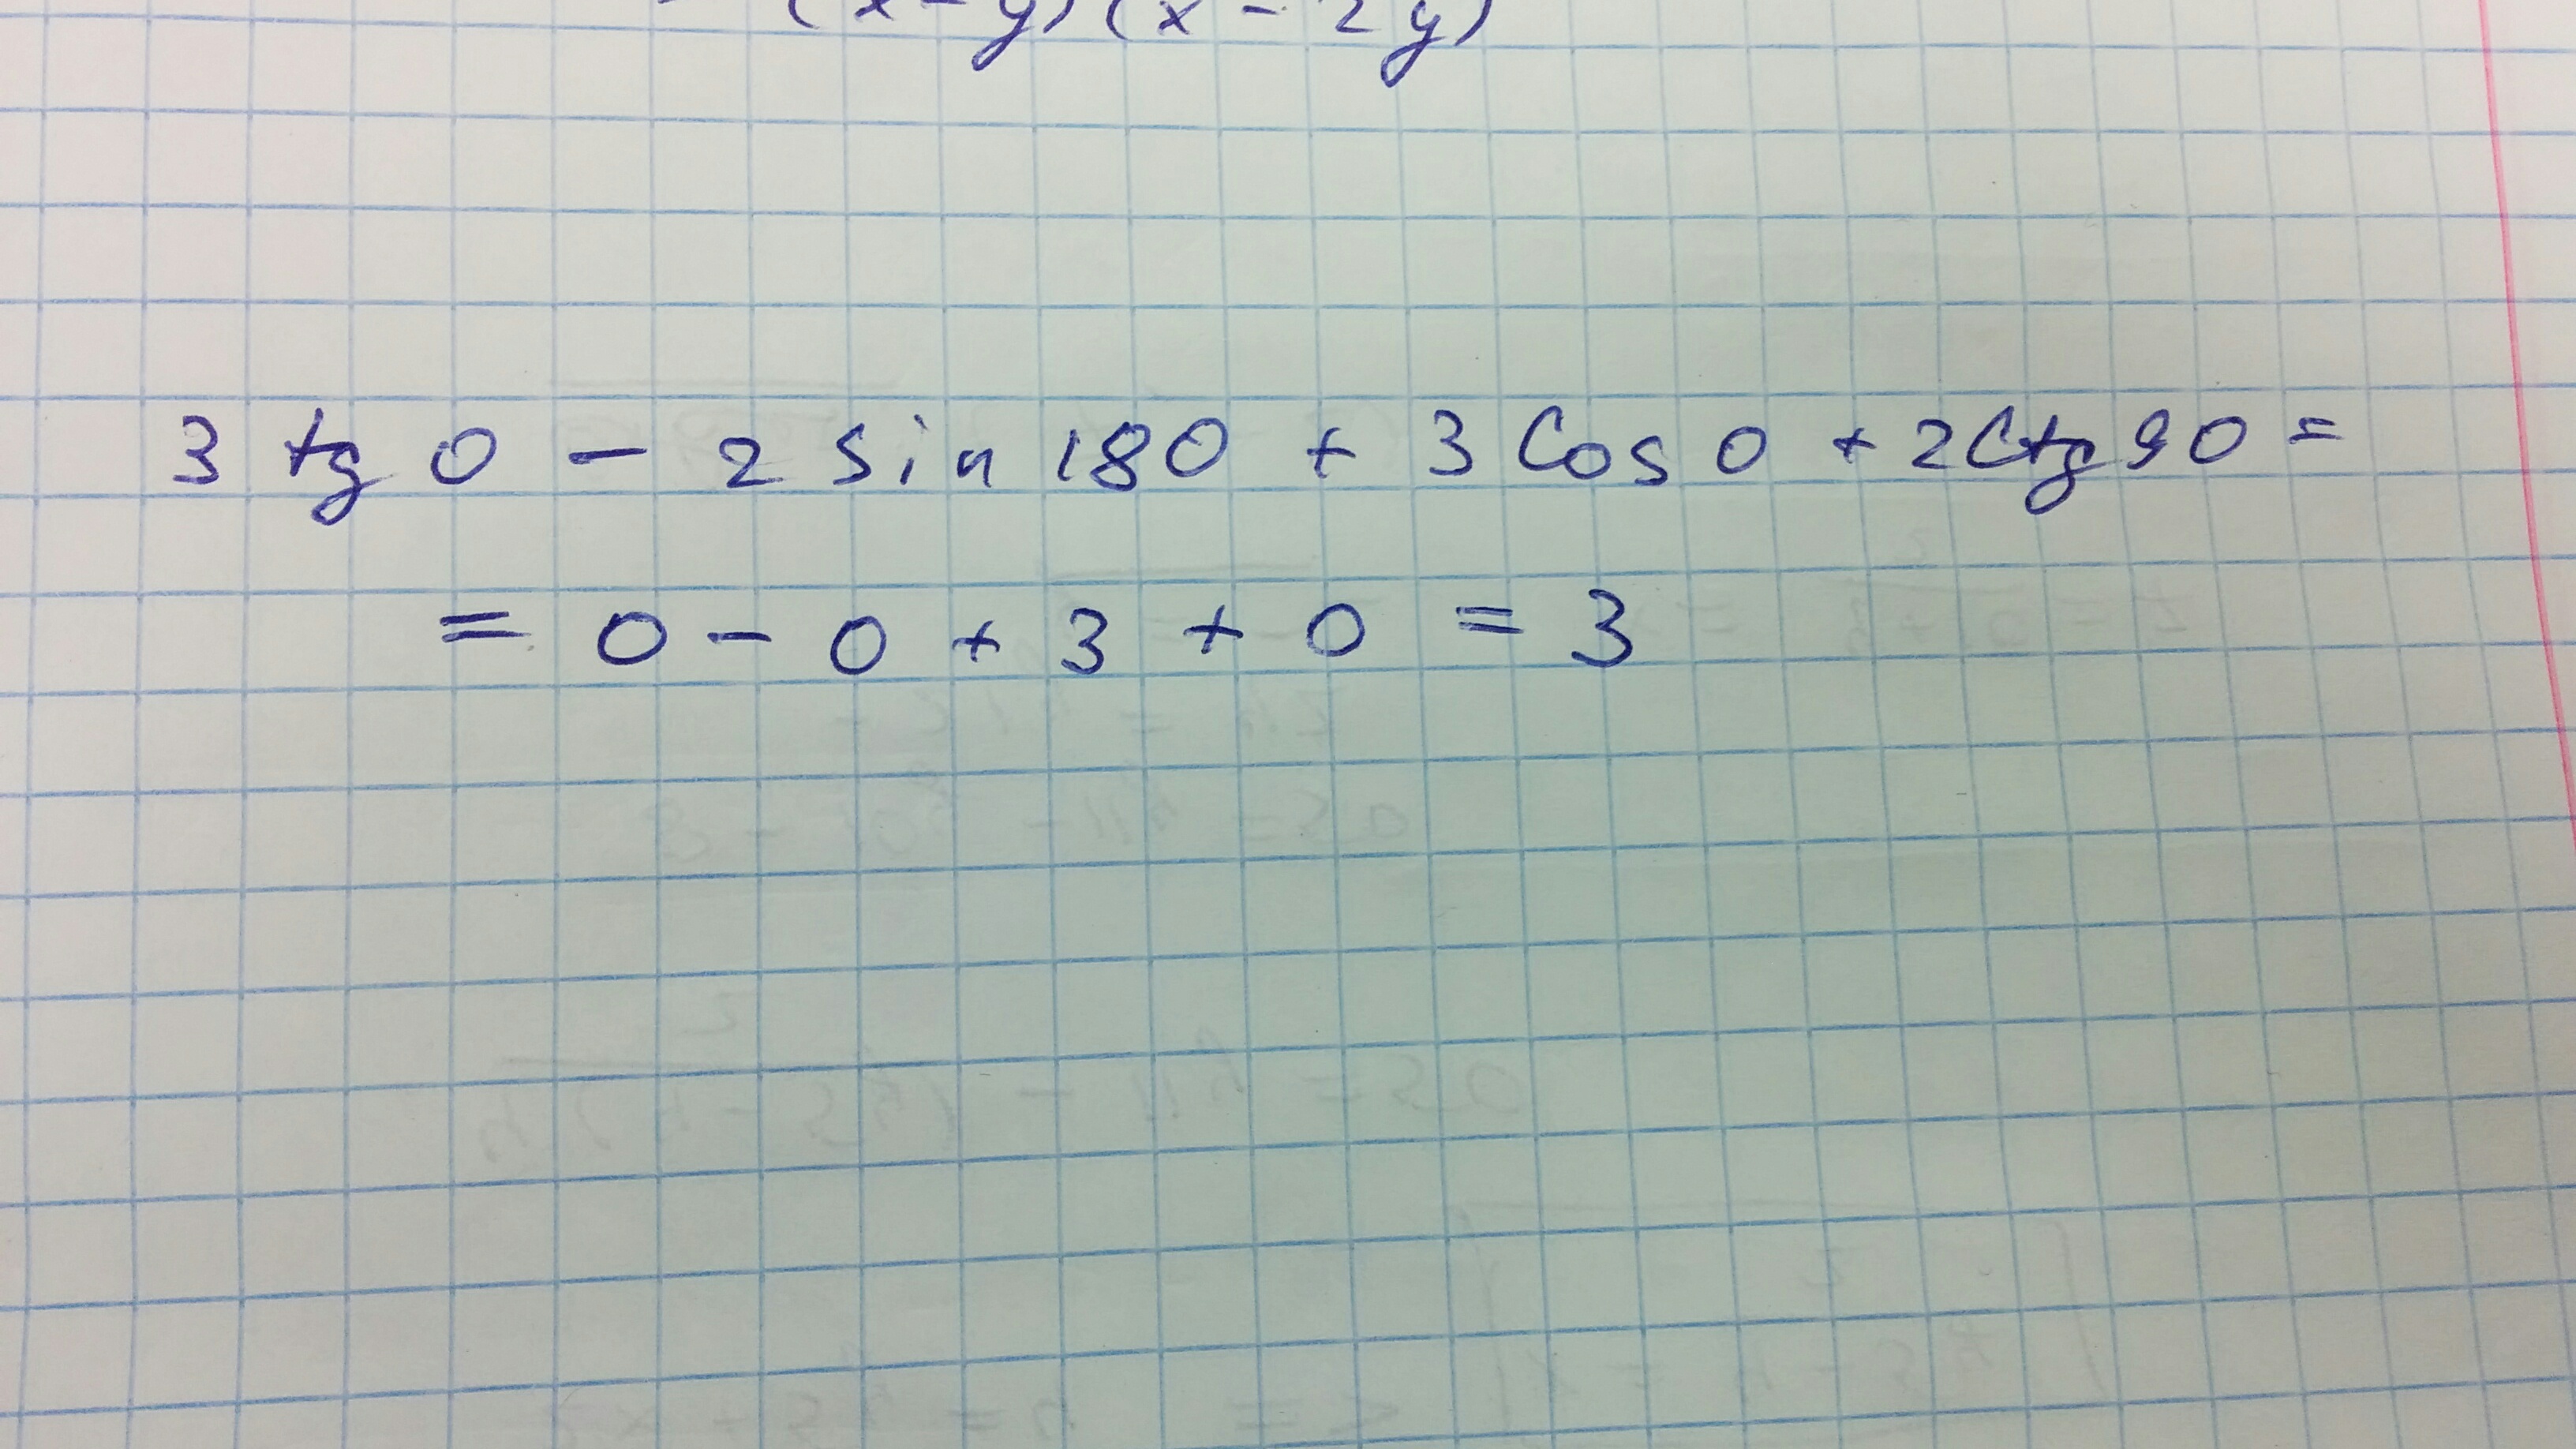 (x-y)(x-2y)
3 tg 0 - 2 sin 180 + 3 Cos 0 + 2Ctg 90 =
= 0 - 0 + 3 + 0 = 3